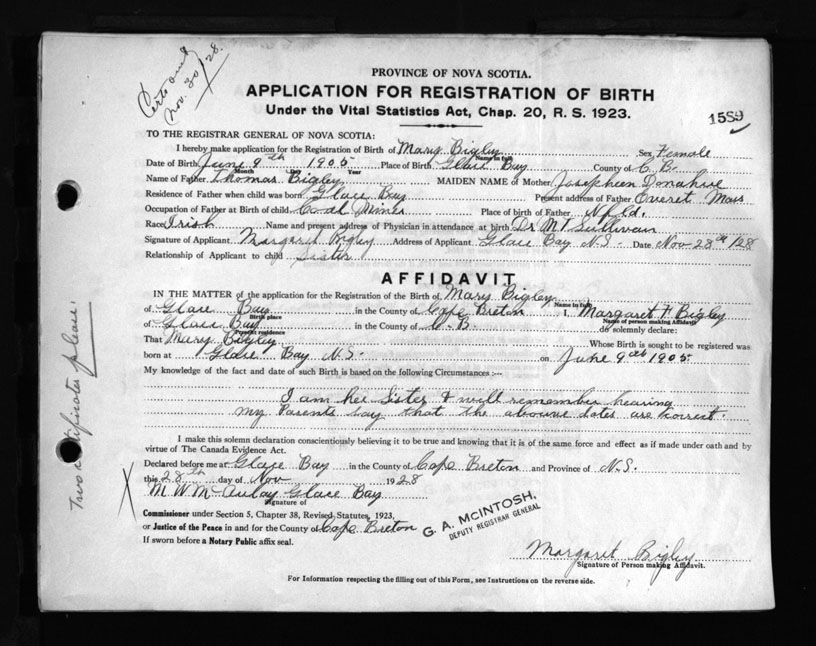 Certs out
Nov. 30/28.
PROVINCE OF NOVA SCOTIA.
APPLICATION FOR REGISTRATION OF BIRTH
Under the Vital Statistics Act, Chap. 20, R. S. 1923.
1559
TO THE REGISTRAR GENERAL OF NOVA SCOTIA:
I hereby make application for the Registration of Birth of Mary Bigley Sex Female
Name in full
Date of Birth June 9th 1905 Place of Birth Glace Bay County of C. B.
Month Day Year
Name of Father Thomas Bigley MAIDEN NAME of Mother Josepheen Donahue
Residence of Father when child was born Glace Bay Present address of Father Everet Mass
Occupation of Father at Birth of child Coal Miner Place of birth of Father Nfld.
Race Irish Name and present address of Physician in attendance at birth Dr MT Sullivan
Signature of Applicant Margaret Bigley Address of Applicant Glace Bay N.S. Date Nov 28th/28
Relationship of Applicant to child Sister
AFFIDAVIT
IN THE MATTER of the application for the Registration of the Birth of Mary Bigley
Name in full
of Glace Bay in the County of Cape Breton I, Margaret F Bigley
Birth place Name of person making Affidavit
of Glace Bay in the County of C. B. do solemnly declare:
Present residence
That Mary Bigley Whose Birth is sought to be registered was
born at Glace Bay N.S. on June 9th 1905
My knowledge of the fact and date of such Birth is based on the following Circumstances :--
I am her Sister & will remember hearing
my Parents say that the abouve dates are correct.
I make this solemn declaration conscientiously believing it to be true and knowing that it is of the same force and effect as if made under oath and by
virtue of The Canada Evidence Act.
Declared before me at Glace Bay in the County of Cape Breton and Province of N.S.
this 28th day of Nov 1928
M W McAulay Glace Bay
Signature of
Commissioner under Section 5, Chapter 38, Revised Statutes, 1923,
or Justice of the Peace in and for the County of Cape Breton
If sworn before a Notary Public affix seal.
G. A. McINTOSH,
DEPUTY REGISTRAR GENERAL
Margaret Bigley
Signature of Person making Affidavit.
For Information respecting the filling out of this Form, see Instructions on the reverse side.
Two certificates please.